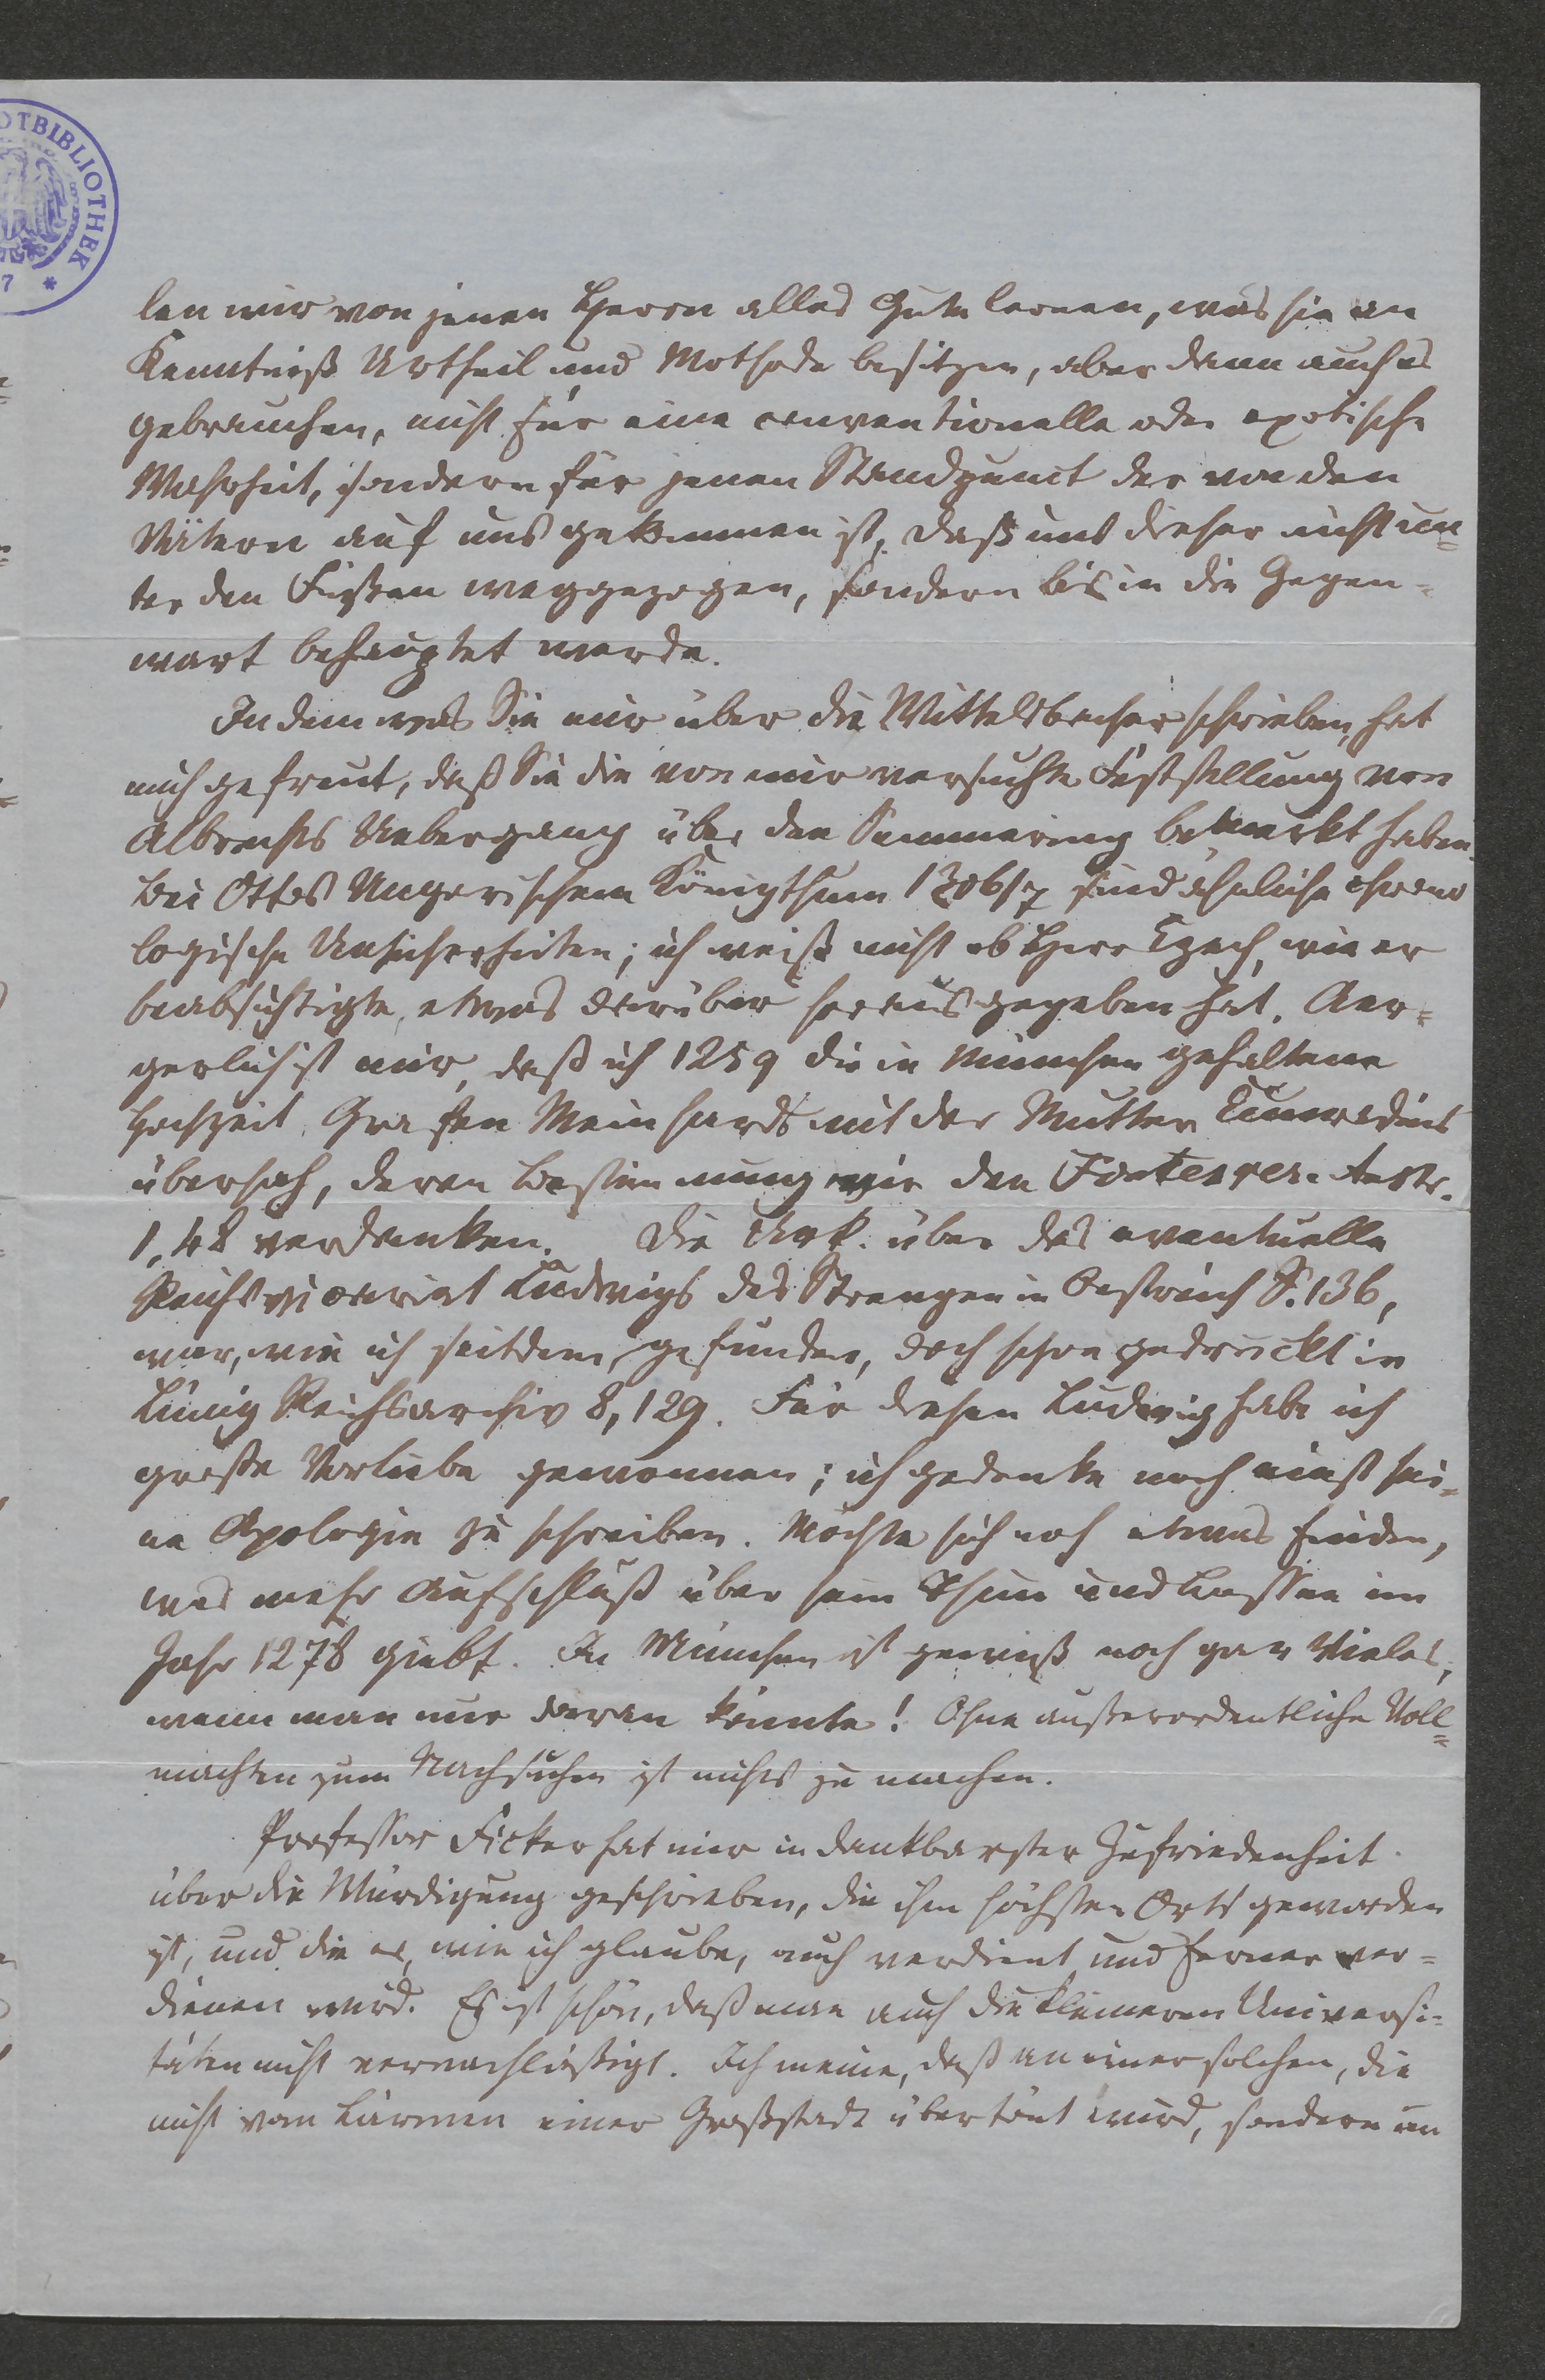 OTBIBLIOTHEK
7 *
len wir von jenen Herrn alles Gute lernen, was sie an
Kenntniß Urtheil und Methode besitzen, aber dann auch es
gebrauchen, nicht für eine conventionelle oder exotische
Wahrheit, sondern für jenen Standpunct der von den
Vätern auf uns gekommen ist, daß uns dieser nicht un=
ter den Füßen weggezogen, sondern bis in die Gegen=
wart behauptet werde.
In dem was Sie mir über die Wittelsbacher schrieben, hat
mich gefreut, daß Sie die von mir versuchte Feststellung von
Albrechts Uebergang über den Semmering bemerkt haben.
Bei Ottos Ungerischem Königthum 1306/7 sind ähnliche chrono
logische Unsicherheiten; ich weiß nicht ob Herr Czech, wie er
beabsichtigte, etwas darüber herausgegeben hat. Aer=
gerlich ist mir, daß ich 1259 die in München gehaltene
Hochzeit Grafen Meinhards mit der Mutter Cunradins
übersah, deren Bestimmung wir den Fontes rer. Austr.
1,48 verdanken. Die Urk. über das eventuelle
Reichsvicariat Ludwigs des Strengen in Oestreich S. 136,
war, wie ich seitdem gefunden, doch schon gedruckt in
Lünig Reichsarchiv 8,129. Für diesen Ludwig habe ich
große Vorliebe gewonnen; ich gedenke noch einst sei=
ne Apologie zu schreiben. Möchte sich noch etwas finden,
was mehr Aufschluß über sein Thun und Lassen im
Jahr 1278 giebt. In München ist gewiß noch gar Vieles,
wenn man nur daran könnte! Ohne außerordentliche Voll=
machten zum Nachsuchen ist nichts zu machen.
Professor Ficker hat mir in dankbarster Zufriedenheit
über die Würdigung geschrieben, die ihm höchsten Orts geworden
ist, und die er, wie ich glaube, auch verdient und ferner ver=
dienen wird. Es ist schön, daß man auch die kleineren Universi=
täten nicht vernachläßigt. Ich meine, daß an einer solchen, die
nicht vom Lärmen einer Großstadt übertönt wird, sondern an